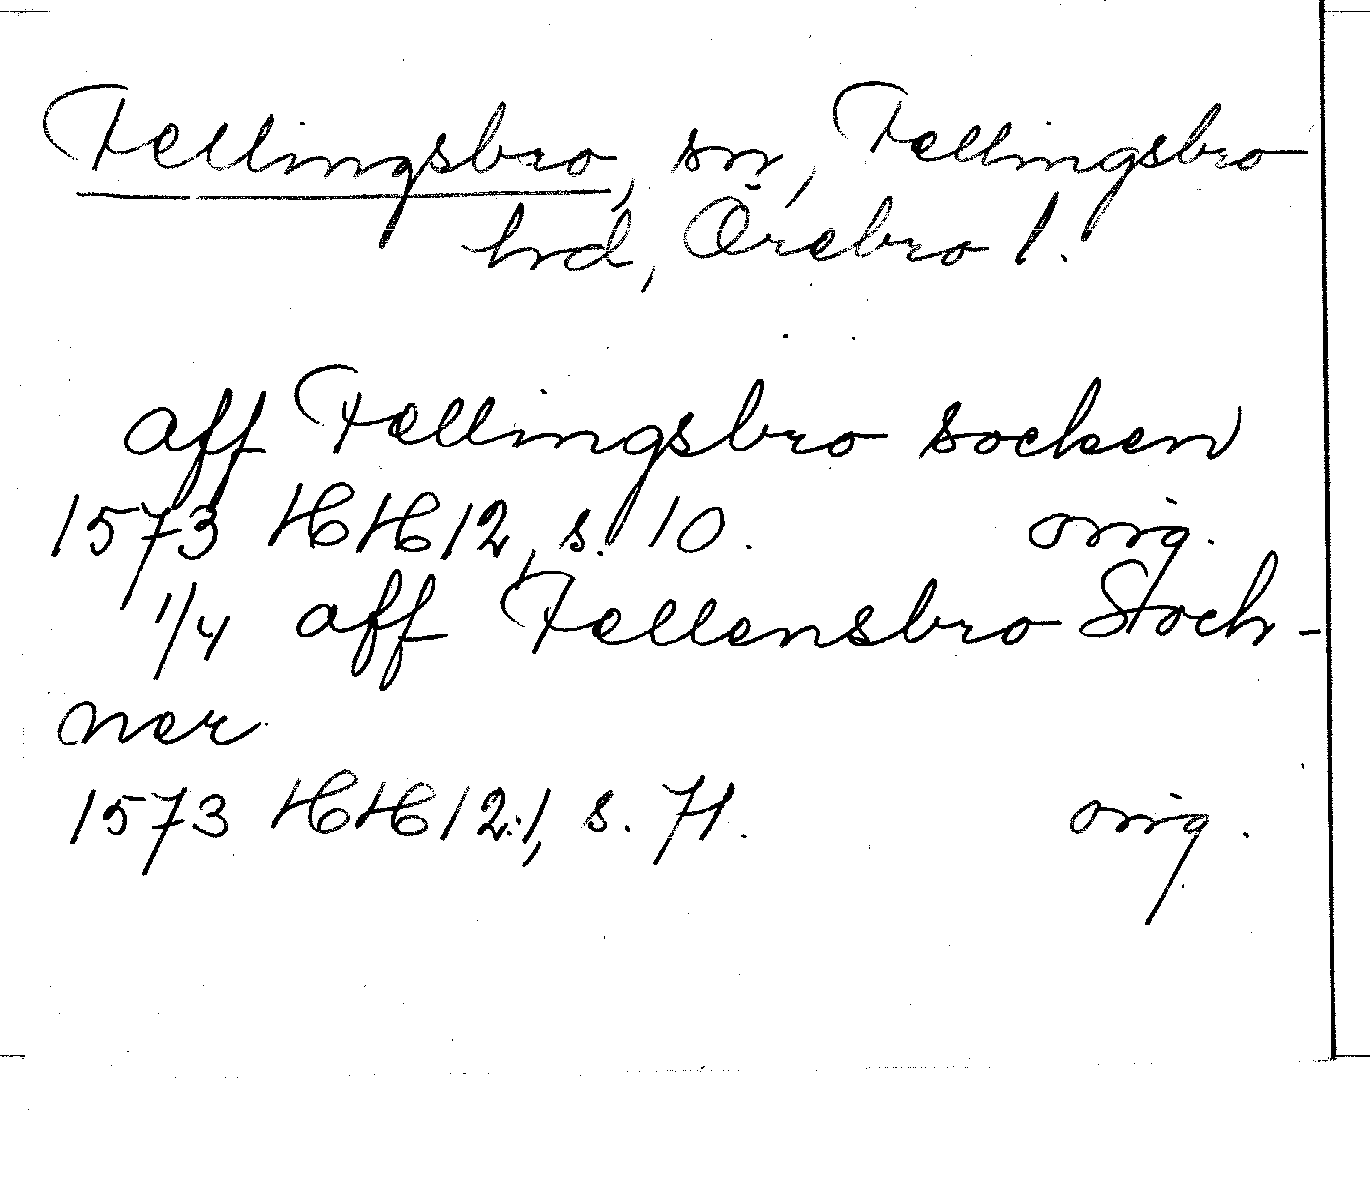 Fellingsbro, sn, Fellingsbro
hrd, Örebro l.
aff Fællingsbro socken
1573 HH12, s. 10. orig.
1/4 aff Fellensbro Stoch-
ner
1573 HH12:1, s. 71. orig.